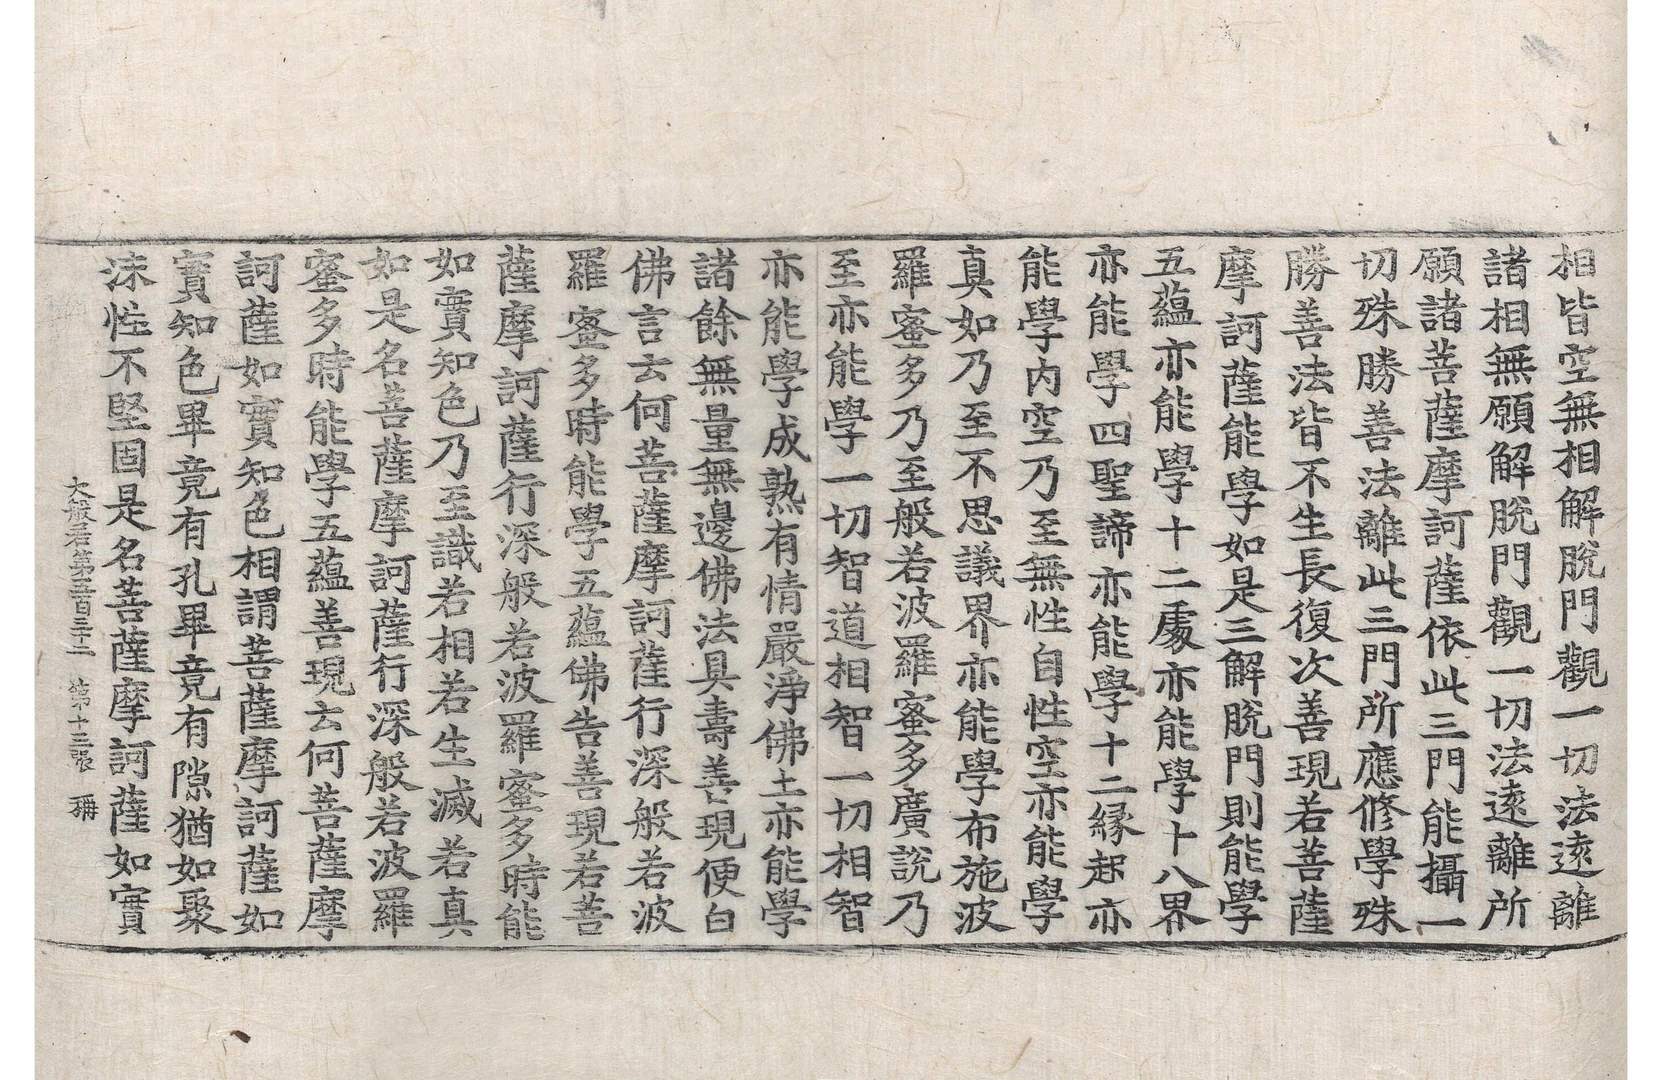 相皆空無相解脫門觀一切法遠離
諸相無願解脫門觀一切法遠離所
願諸菩薩摩訶薩依此三門能攝一
切殊勝善法離此三門所應修學殊
勝善法皆不生長復次善現若菩薩
摩訶薩能學如是三解脫門則能學
五蘊亦能學十二處亦能學十八界
亦能學四聖諦亦能學十二緣起亦
能學內空乃至無性自性空亦能學
真如乃至不思議界亦能學布施波
羅蜜多乃至般若波羅蜜多廣說乃
至亦能學一切智道相智一切相智
亦能學成熟有情嚴淨佛土亦能學
諸餘無量無邊佛法具壽善現便白
佛言云何菩薩摩訶薩行深般若波
羅蜜多時能學五蘊佛告善現若菩
薩摩訶薩行深般若波羅蜜多時能
如實知色乃至識若相若生滅若真
如是名菩薩摩訶薩行深般若波羅
蜜多時能學五蘊善現云何菩薩摩
訶薩如實知色相謂菩薩摩訶薩如
實知色畢竟有孔畢竟有隙猶如聚
沫性不堅固是名菩薩摩訶薩如實
大般若第五百三十二 第十三張 珠